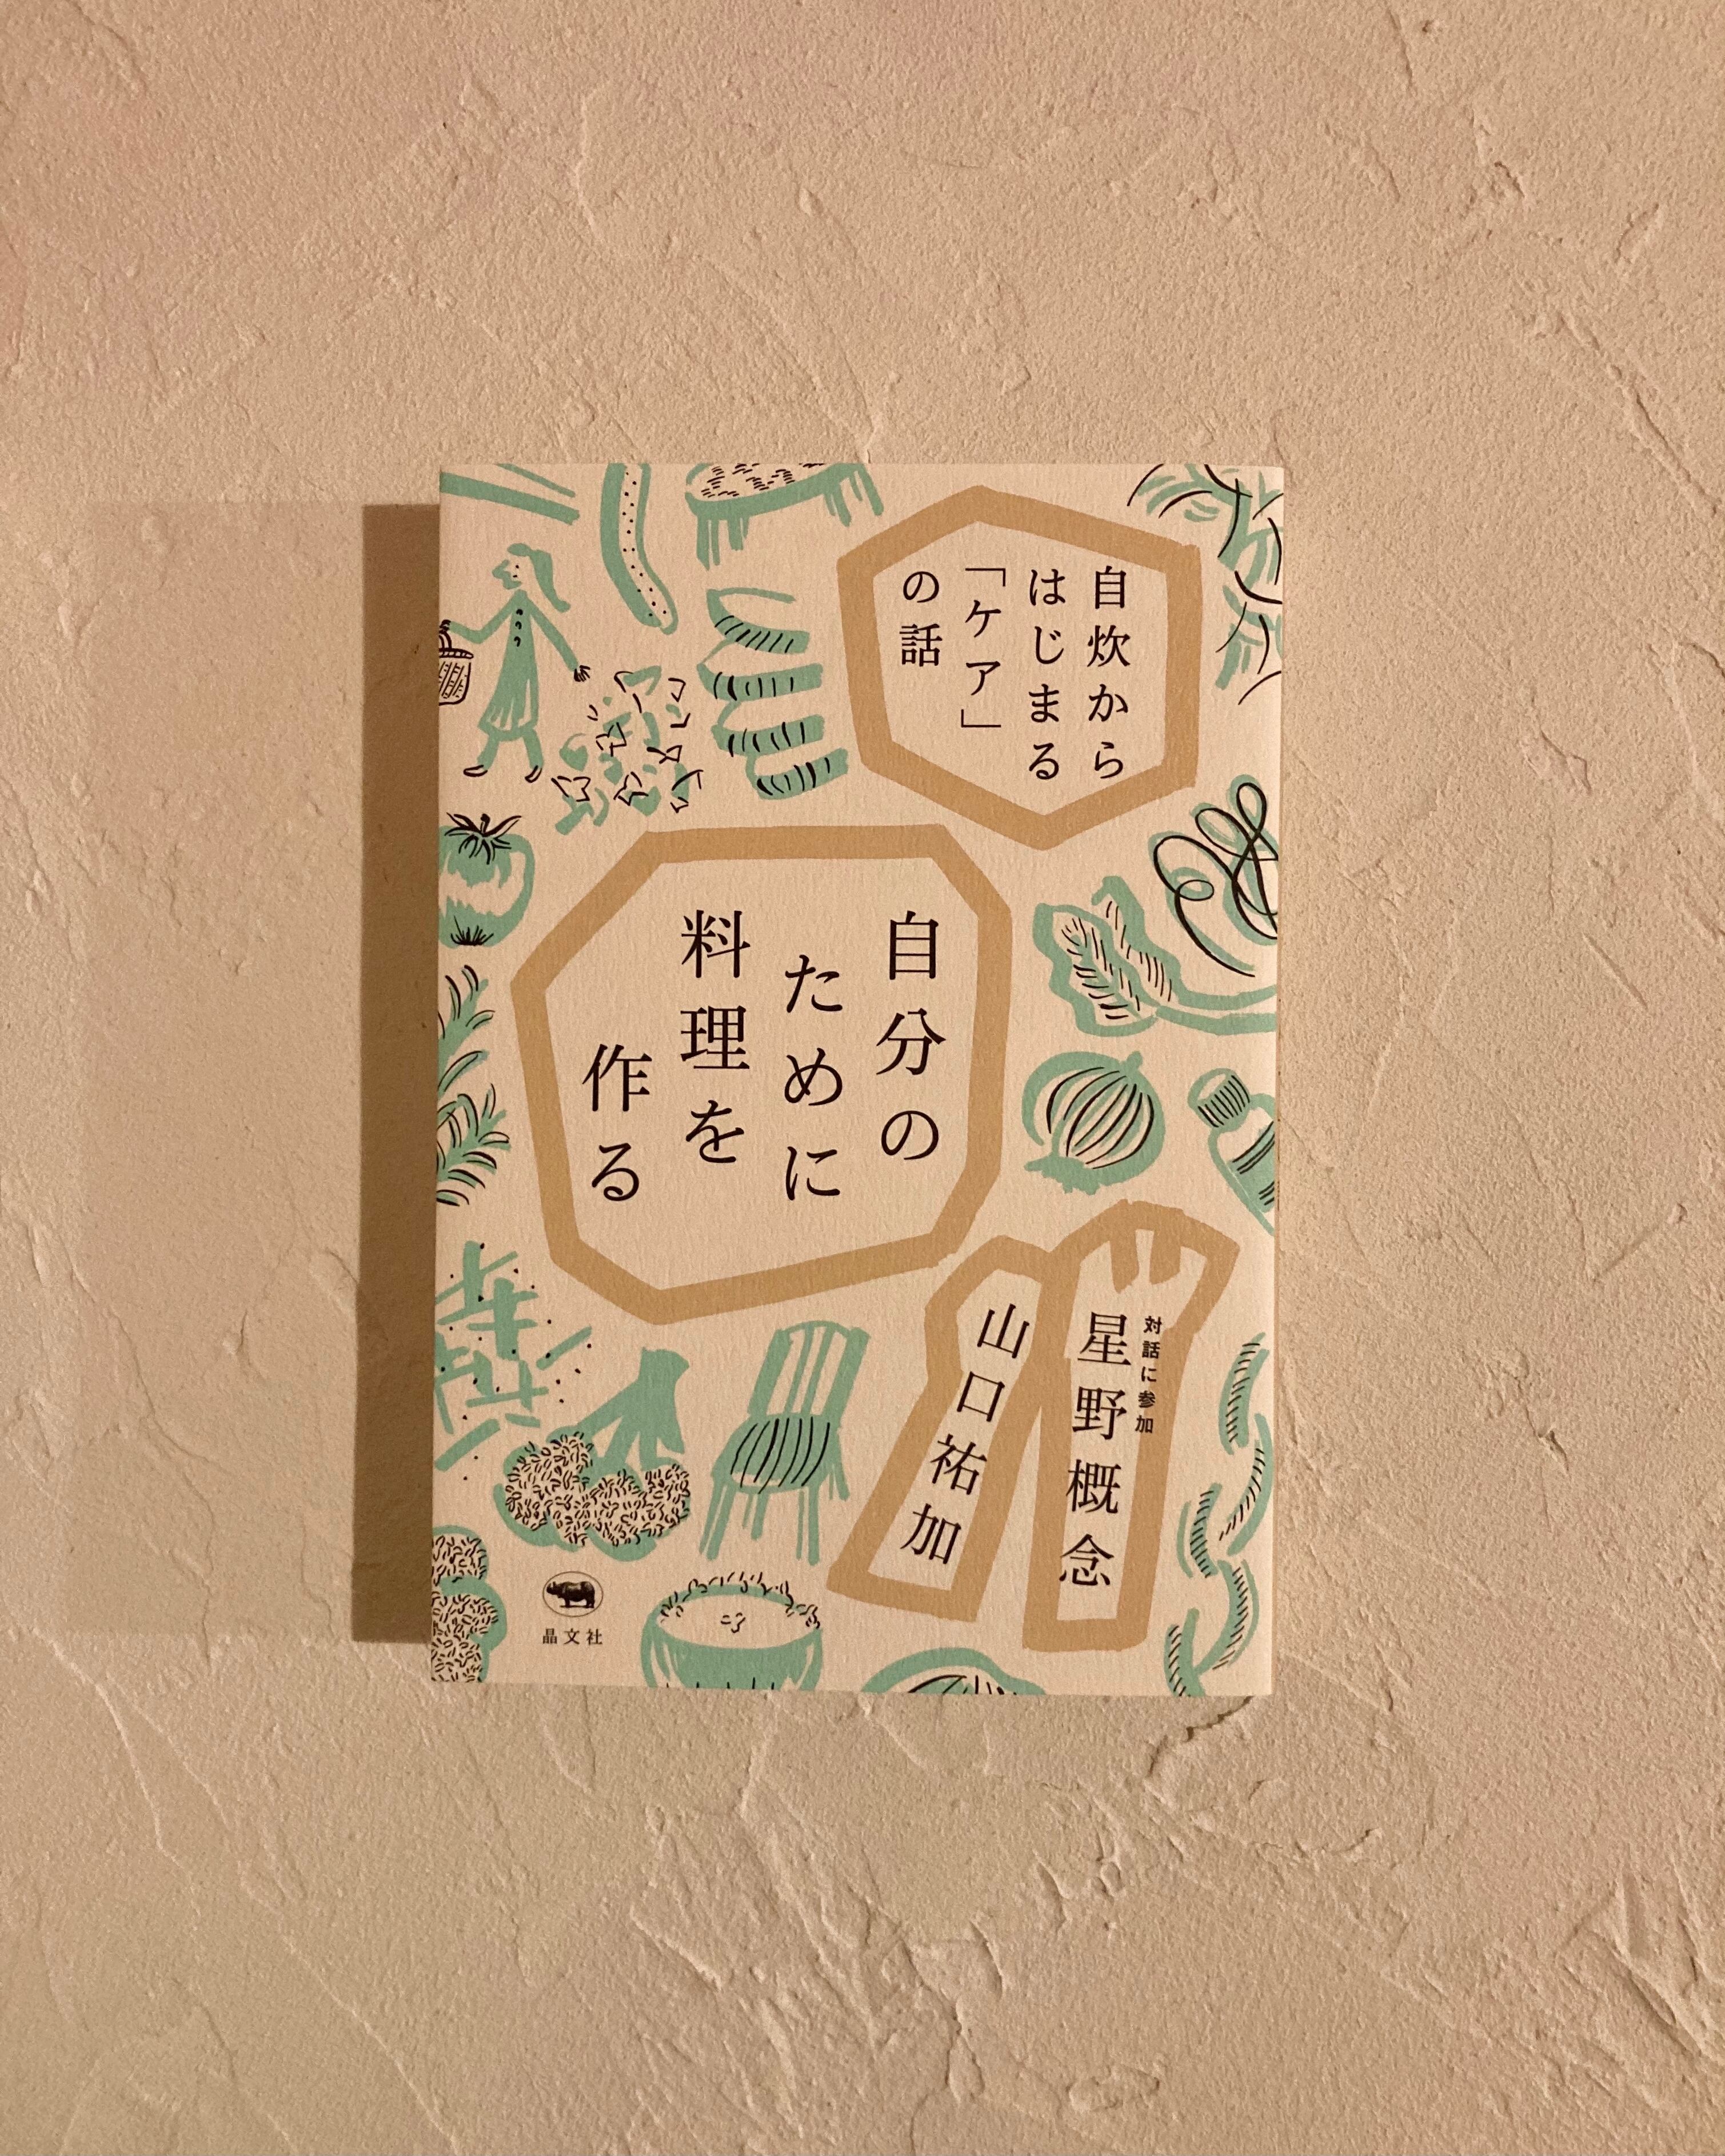 自炊から
はじまる
「ケア」
の話
自分の
ために
料理を
作る
対話に参加
星野概念
山口祐加
晶文社